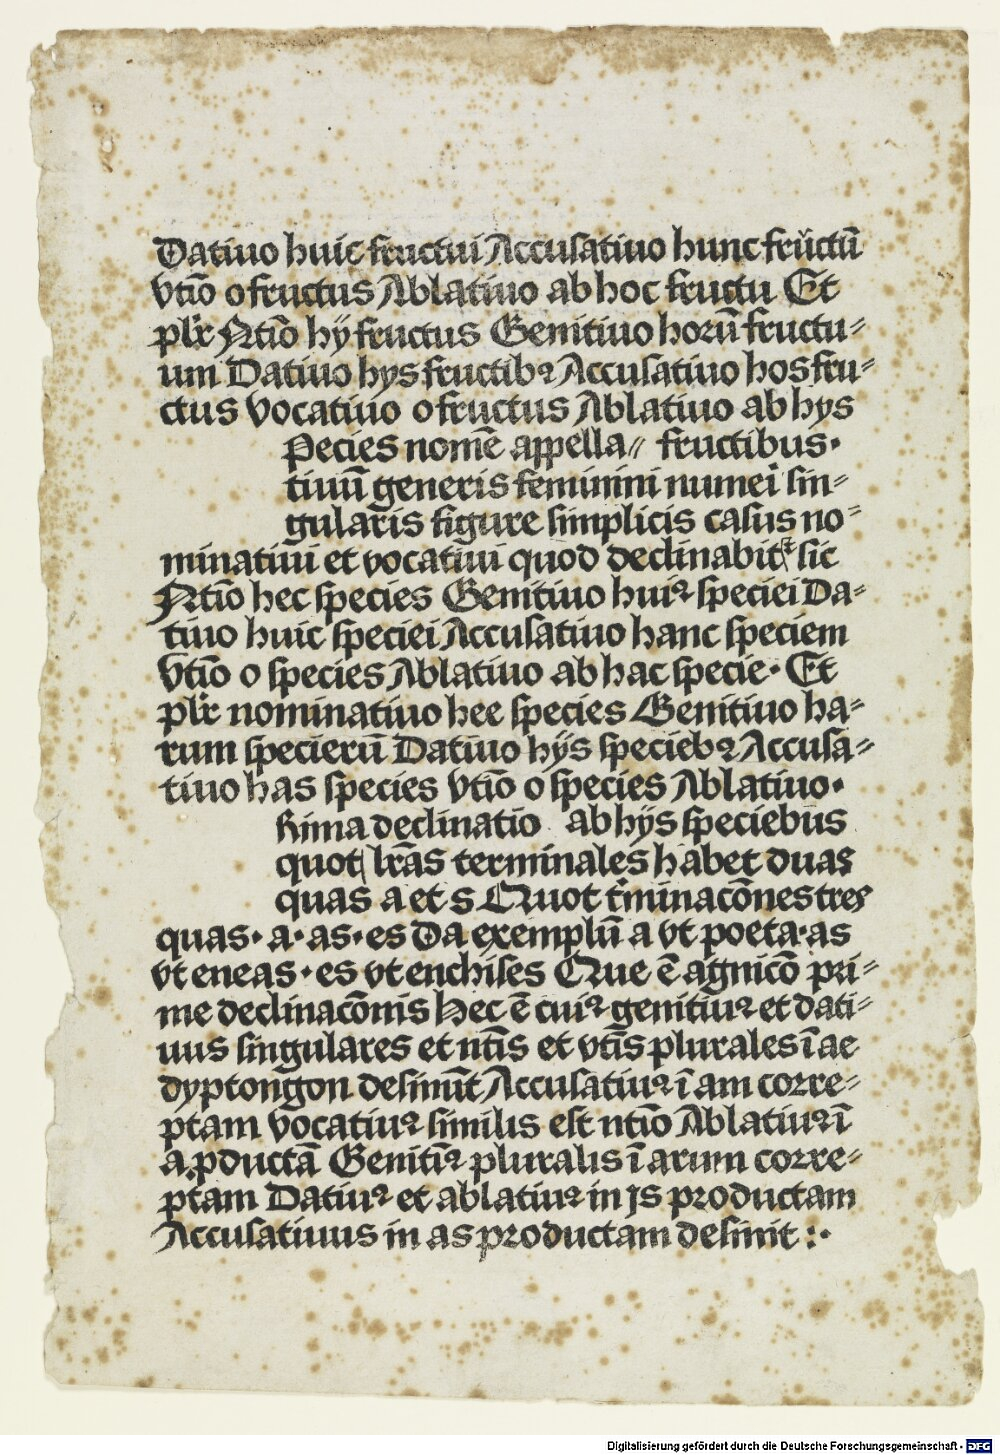 Datiuo huic fructui Accusatiuo hunc fructū
vtīo o fructus Ablatiuo ab hoc fructu Et
plr̄ Ntīo hij fructus Genitiuo horū fructu⸗
um Datiuo hys fructibꝫ Accusatiuo hos fru⸗
ctus vocatiuo o fructus Ablatiuo ab hys
Pecies nomē appella⸗ fructibus·
tiuū generis feminini numei sin⸗
gularis figure simplicis casus no⸗
minatiui et vocatiui quod declinabit᷑ sic
Ntīo hec species Genitiuo huiꝰ speciei Da⸗
tiuo huic speciei Accusatiuo hanc speciem
vtīo o species Ablatiuo ab hac specie· Et
plr̄ nominatiuo hee species Genitiuo ha⸗
rum specierū Datiuo hijs speciebꝫ Accusa⸗
tiuo has species vtīo o species Ablatiuo·
Rima declinatio ab hijs speciebus
quot lr̄as terminales habet duas
quas a et s Quot t̄minacōnes tres
quas· a· as· es Da exemplū a vt poeta· as
vt eneas· es vt enchises Que ē agnicō pri⸗
me declinacōnis Hec ē cuiꝰ genitiuꝰ et dati⸗
uus singulares et ntīs et vtīs plurales ī ae
dyptongon desinūt Accusatiuꝰ ī am corre⸗
ptam vocatiuꝰ similis est ntīo Ablatiuꝰ ī
a ꝓductā Genitīꝰ pluralis ī arum corre⸗
ptam Datiuꝰ et ablatiuꝰ in is productam
Accusatiuus in as productam desinit :·
Digitalisierung gefördert durch die Deutsche Forschungsgemeinschaft - DFG